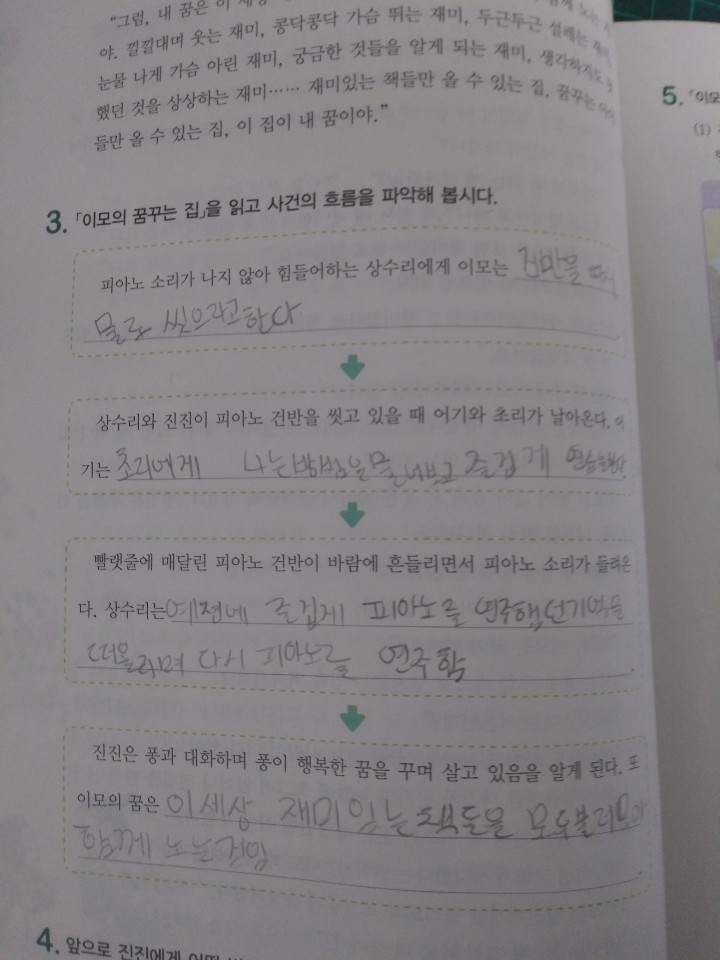 "그럼, 내 꿈은 이 세상
야. 낄낄대며 웃는 재미, 콩닥콩닥 가슴 뛰는 재미, 두근두근 설레는 재미,
눈물 나게 가슴 아린 재미, 궁금한 것들을 알게 되는 재미, 생각하지도 못
했던 것을 상상하는 재미…… 재미있는 책들만 올 수 있는 집, 꿈꾸는
들만 올 수 있는 집, 이 집이 내 꿈이야."
3. 「이모의 꿈꾸는 집」을 읽고 사건의 흐름을 파악해 봅시다.
피아노 소리가 나지 않아 힘들어하는 상수리에게 이모는 건반을 떼서
물로 씻으라고한다
상수리와 진진이 피아노 건반을 씻고 있을 때 어기와 초리가 날아온다. 어
기는 초리에게 나는방법을 물어보고 즐겁게 연습을한다
빨랫줄에 매달린 피아노 건반이 바람에 흔들리면서 피아노 소리가 들려온
다. 상수리는 예전네 즐겁게 피아노를 연주했던기억을
떠올리며 다시 피아노를 연주함
진진은 퐁과 대화하며 퐁이 행복한 꿈을 꾸며 살고 있음을 알게 된다. 또
이모의 꿈은 이세상 재미있는 책들을 모두불러모아
함께 노는것임
4. 앞으로 진진에게 어떤
5. 「이모
(1)